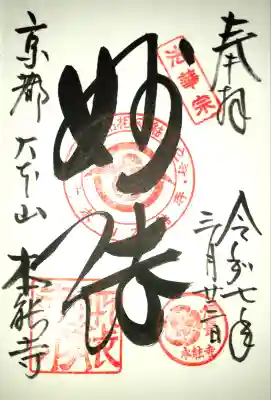 奉拝
法華宗
令和七年
三月廿三日
妙法
京都 大本山 本能寺